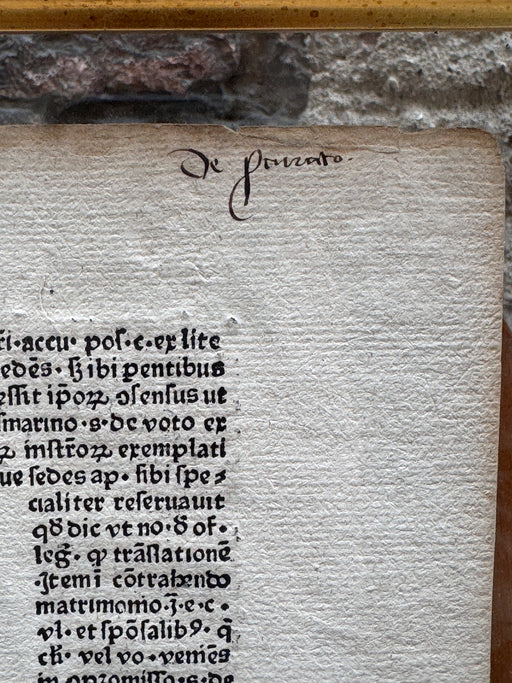 De p̱curato.
r̃i·accu· pos·c·ex lite
edēs· s; ibi p̱entibus
essit ip̄oꝝ ↄsensus ut
smarino·s·de voto ex
ꝝ instr̄oꝝ exemplati
ue sedes ap· sibi spe⸗
cialiter reseruauit
qđ dic vt no·đ of·
leg̃· ꝙ trāslationē
·Item ī cōtrahendo
matrimonio·J̄·e·c·
vl· et spōsalibꝰ· q̄
cti· vel vo·veniēs
in promisso·s·de